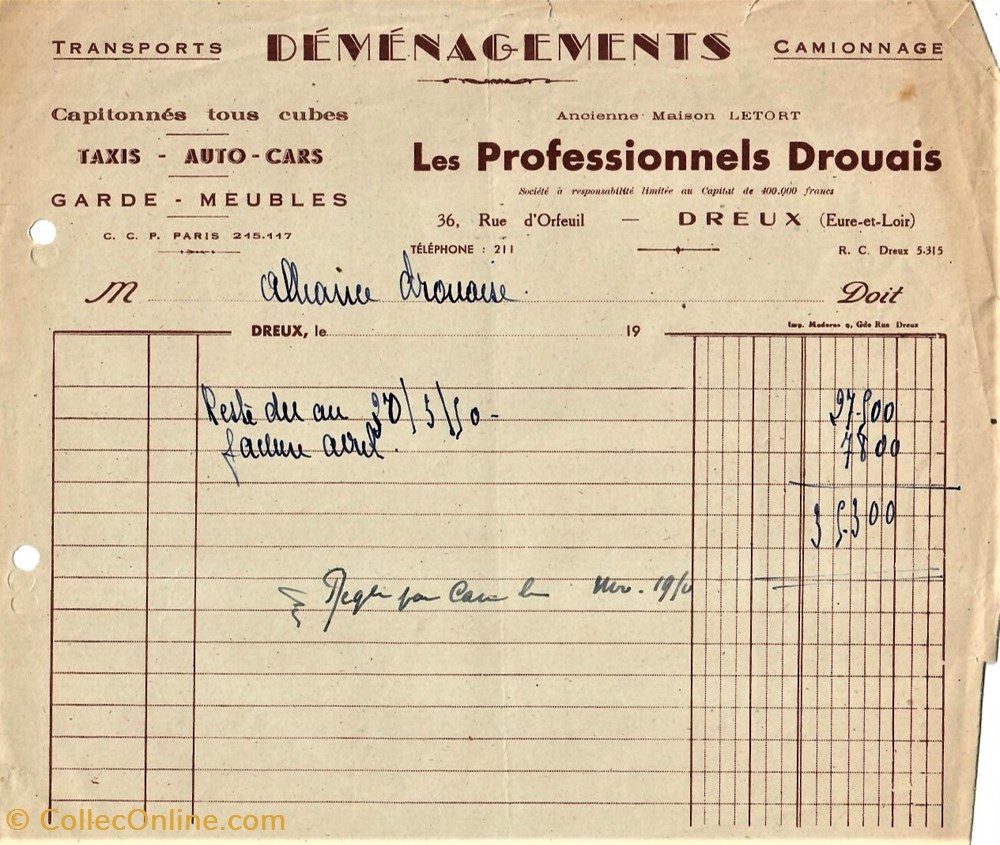 TRANSPORTS DÉMÉNAGEMENTS CAMIONNAGE
Capitonnés tous cubes
TAXIS - AUTO-CARS
GARDE - MEUBLES
C. C. P. PARIS 215.117
Ancienne Maison LETORT
Les Professionnels Drouais
Société à responsabilité limitée au Capital de 400.000 francs
36, Rue d'Orfeuil — DREUX (Eure-et-Loir)
TÉLÉPHONE : 211 R. C. Dreux 5.315
M Alliance Drouaise Doit
DREUX, le 19
Imp. Moderne 9, Gde Rue Dreux
Reste du au 30/3/50 - 27.500
facture avril. 7800
35300
Regle par Nov. 19
© CollecOnline.com